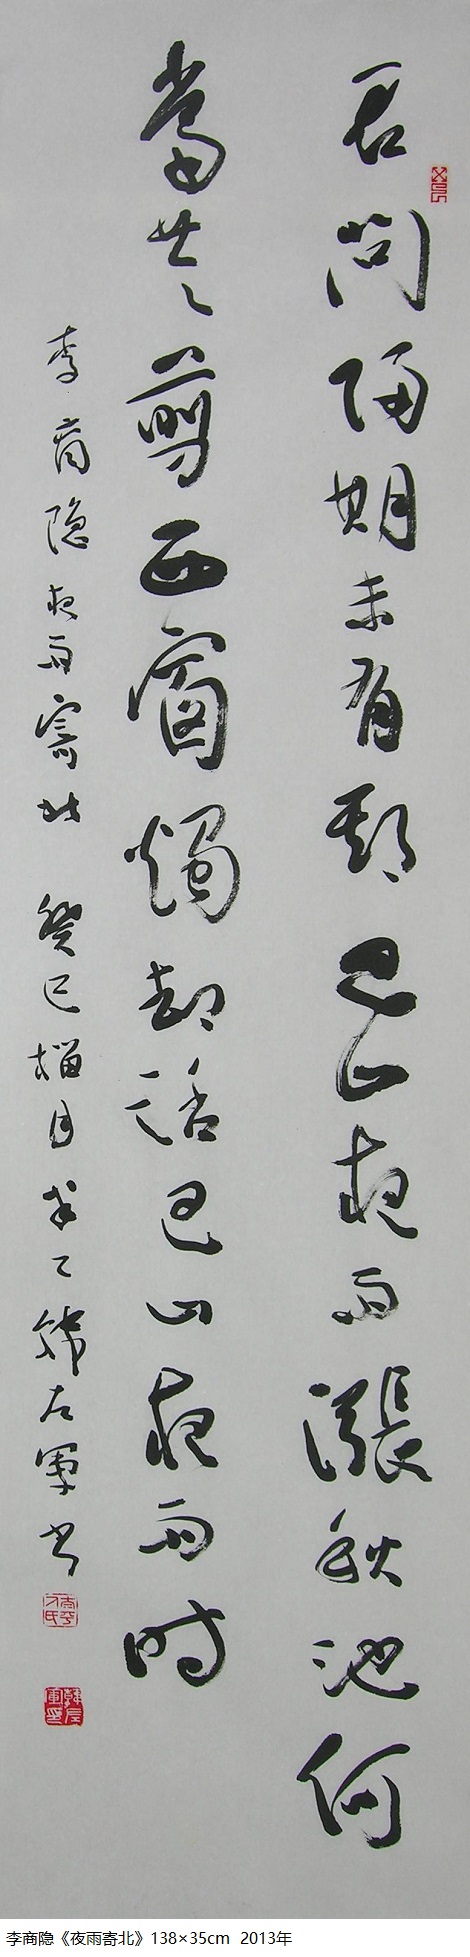 君問歸期未有期巴山夜雨漲秋池何
當共剪西窗燭却話巴山夜雨時
李商隐夜雨寄北 癸巳榴月 韓左軍書
李商隐《夜雨寄北》138×35cm 2013年